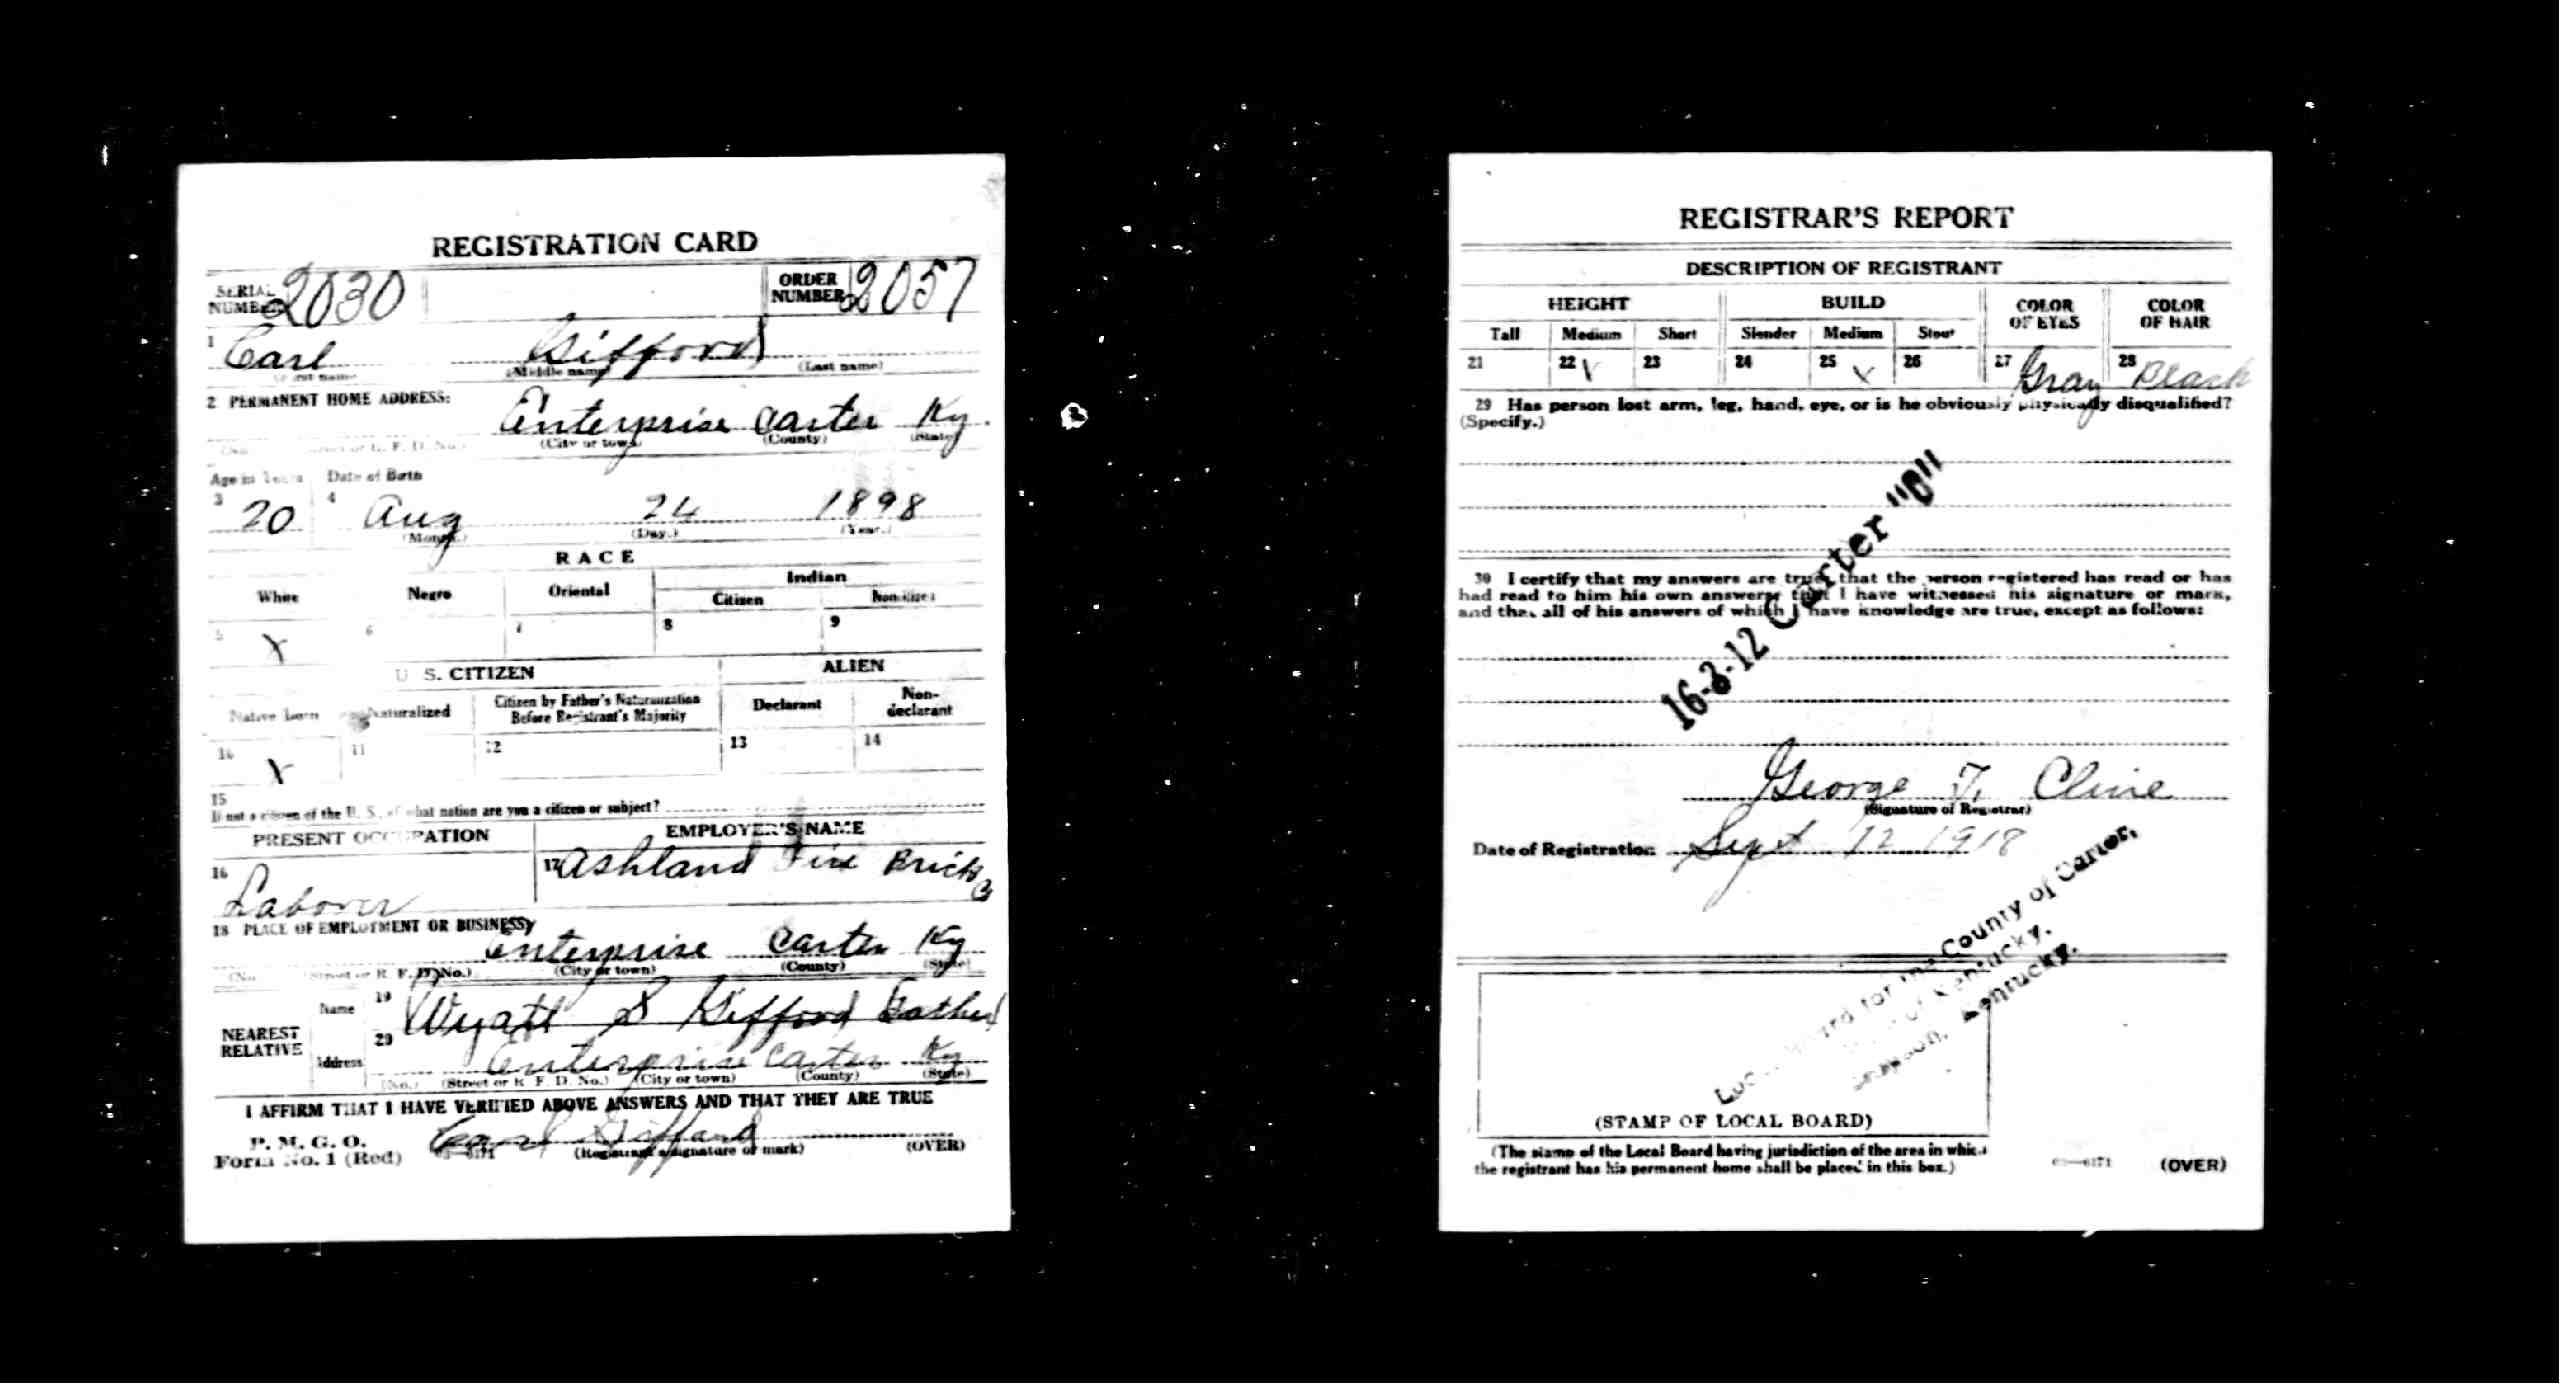 REGISTRATION CARD
SERIAL NUMBER 2030 ORDER NUMBER 2057
1 Carl Gifford
(First name) (Middle name) (Last name)
2 PERMANENT HOME ADDRESS:
Enterprise Carter Ky.
(No.) (Street or R. F. D. No.) (City or town) (County) (State)
Age in Years Date of Birth
3 20 4 Aug 24 1898
(Month.) (Day.) (Year.)
RACE
White Negro Oriental Indian
Citizen Noncitizen
5 X 6 7 8 9
U. S. CITIZEN ALIEN
Native born Naturalized Citizen by Father's Naturalization Before Registrant's Majority Declarant Non-declarant
10 X 11 12 13 14
15
If not a citizen of the U. S., of what nation are you a citizen or subject?
PRESENT OCCUPATION EMPLOYER'S NAME
16 Laborer 17 Ashland Fire Brick Co
18 PLACE OF EMPLOYMENT OR BUSINESS
Enterprise Carter Ky
(No. (Street or R. F. D. No.) (City or town) (County) (State)
NEAREST RELATIVE
Name 19 Wyatt S Gifford Father
Address 20 Enterprise Carter Ky
(No.) (Street or R. F. D. No.) (City or town) (County) (State)
I AFFIRM THAT I HAVE VERIFIED ABOVE ANSWERS AND THAT THEY ARE TRUE
P. M. G. O.
Form No. 1 (Red) Carl Gifford
(Registrant's signature or mark) (OVER)
REGISTRAR'S REPORT
DESCRIPTION OF REGISTRANT
HEIGHT BUILD COLOR OF EYES COLOR OF HAIR
Tall Medium Short Slender Medium Stout
21 22 X 23 24 25 X 26 27 Gray 28 Black
29 Has person lost arm, leg, hand, eye, or is he obviously physically disqualified?
(Specify.)
30 I certify that my answers are true; that the person registered has read or has
had read to him his own answers; that I have witnessed his signature or mark,
and that all of his answers of which I have knowledge are true, except as follows:
16-3-12 Carter "0"
George T. Cline
(Signature of Registrar)
Date of Registration Sept 12 1918
Local Board for the County of Carter,
State of Kentucky.
Grayson, Kentucky.
(STAMP OF LOCAL BOARD)
(The stamp of the Local Board having jurisdiction of the area in which
the registrant has his permanent home shall be placed in this box.)
03—6171 (OVER)